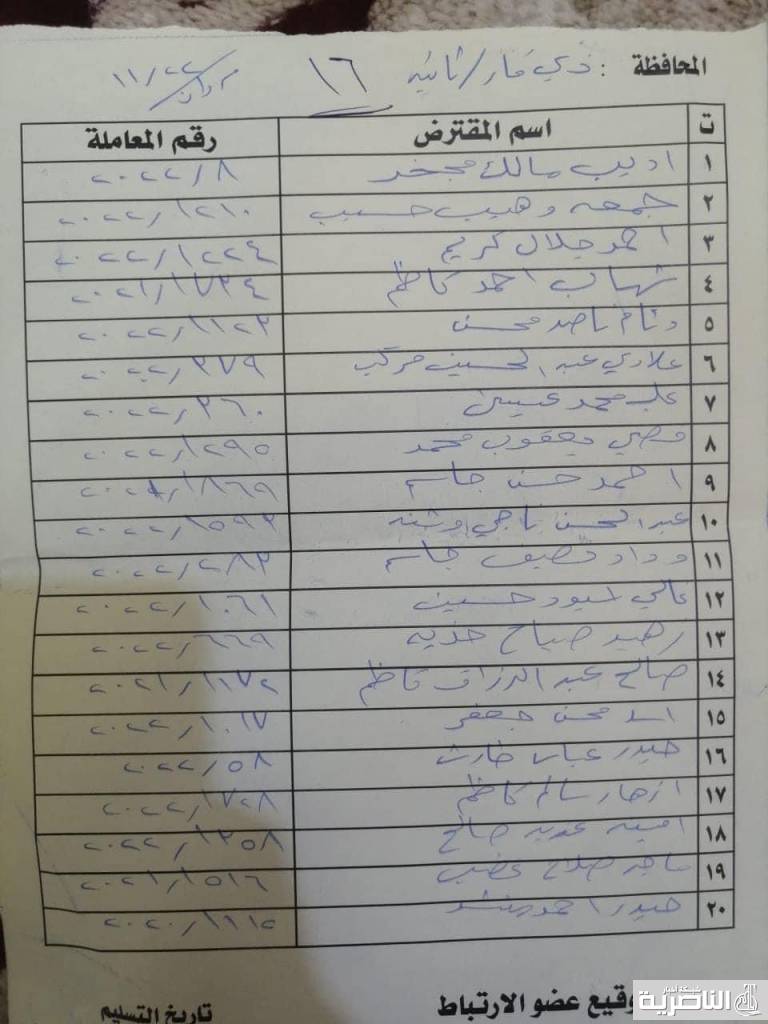 المحافظة : ذي قار/ثانيه ١٦ ١١/٢٢
ت اسم المقترض رقم المعاملة
١ اديب مالك ٢٠٢٢/٨
٢ جمعه وهيب حسيب ٢٠٢٢/١٢١٠
٣ احمد جلال كريم ٢٠٢٢/١٢٢٤
٤ شهاب احمد كاظم ٢٠٢١/١٧٣٤
٥ وئام ناصر محسن ٢٠٢٢/١١٢٣
٦ علاوي عبد الحسين ٢٠٢٢/٣٧٩
٧ علي محمد عيسى ٢٠٢٢/٣٦٠
٨ قصي يعقوب محمد ٢٠٢٢/١٢٩٥
٩ احمد حسن جاسم ١٨٦٩
١٠ عبد الحسن ناجي وشنه ٢٠٢٢/١٥٩٣
١١ وداد جاسم ٢٠٢٢/٢٨٣
١٢ غالي اسود حسين ٢٠٢٢/١٠٦١
١٣ زهير صياح ٢٠٢٢/٦٦٩
١٤ صالح عبد الرزاق كاظم ٢٠٢١/١١٧٢
١٥ اسد محسن جعفر ٢٠٢٢/١٠١٧
١٦ حيدر عباس حارث ٢٠٢٢/٥٨
١٧ ازهار سالم كاظم ٢٠٢٢/١٧٠٨
١٨ امينه صالح ٢٠٢٢/١٣٥٨
١٩ ماجد صلاح ٢٠٢١/١٥١٦
٢٠ حيدر احمد ٢٠٢٠/١١١٥
وقيع عضو الارتباط تاريخ التسليم
شبكة أخبار
الناصرية